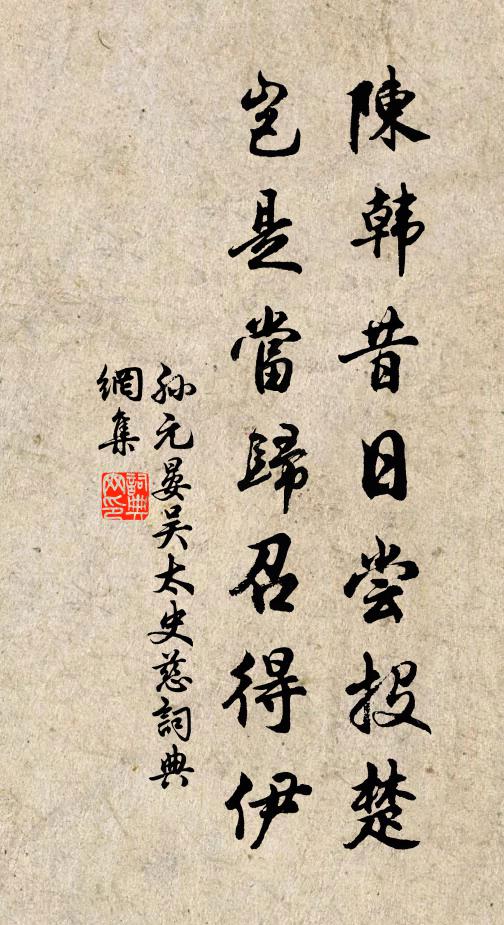 陳韩昔日尝投楚
岂是當歸召得伊
孙元晏吴太史慈詞典
網集
詞典
网印